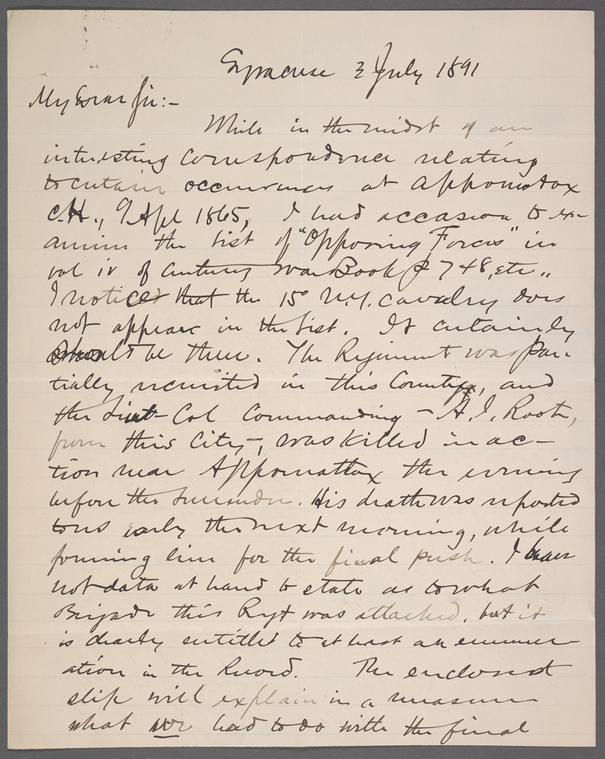 Syracuse 3 July 1891
My Dear Sir:-
While in the midst of an
interesting correspondence relating
to certain occurrences at Appomatox
C.H., 9 Apl 1865, I had occasion to ex-
amine the list of "Opposing Forces" in
vol iv of Century War Book P 748, etc.,
I noticed that the 15" N.Y. Cavalry does
not appear in the list. It certainly
should be there. The Regiment was par-
tially recruited in this County, and
the Lieut-Col Commanding - A. I. Root,
from this City -, was killed in ac-
tion near Appomattox the evening
before the surrender. His death was reported
to us early the next morning, while
forming line for the final push. I have
not data at hand to state as to what
Brigade this Regt was attached, but it
is clearly entitled to at least an enumer-
ation in the Record. The enclosed
slip will explain in a measure
what we had to do with the final